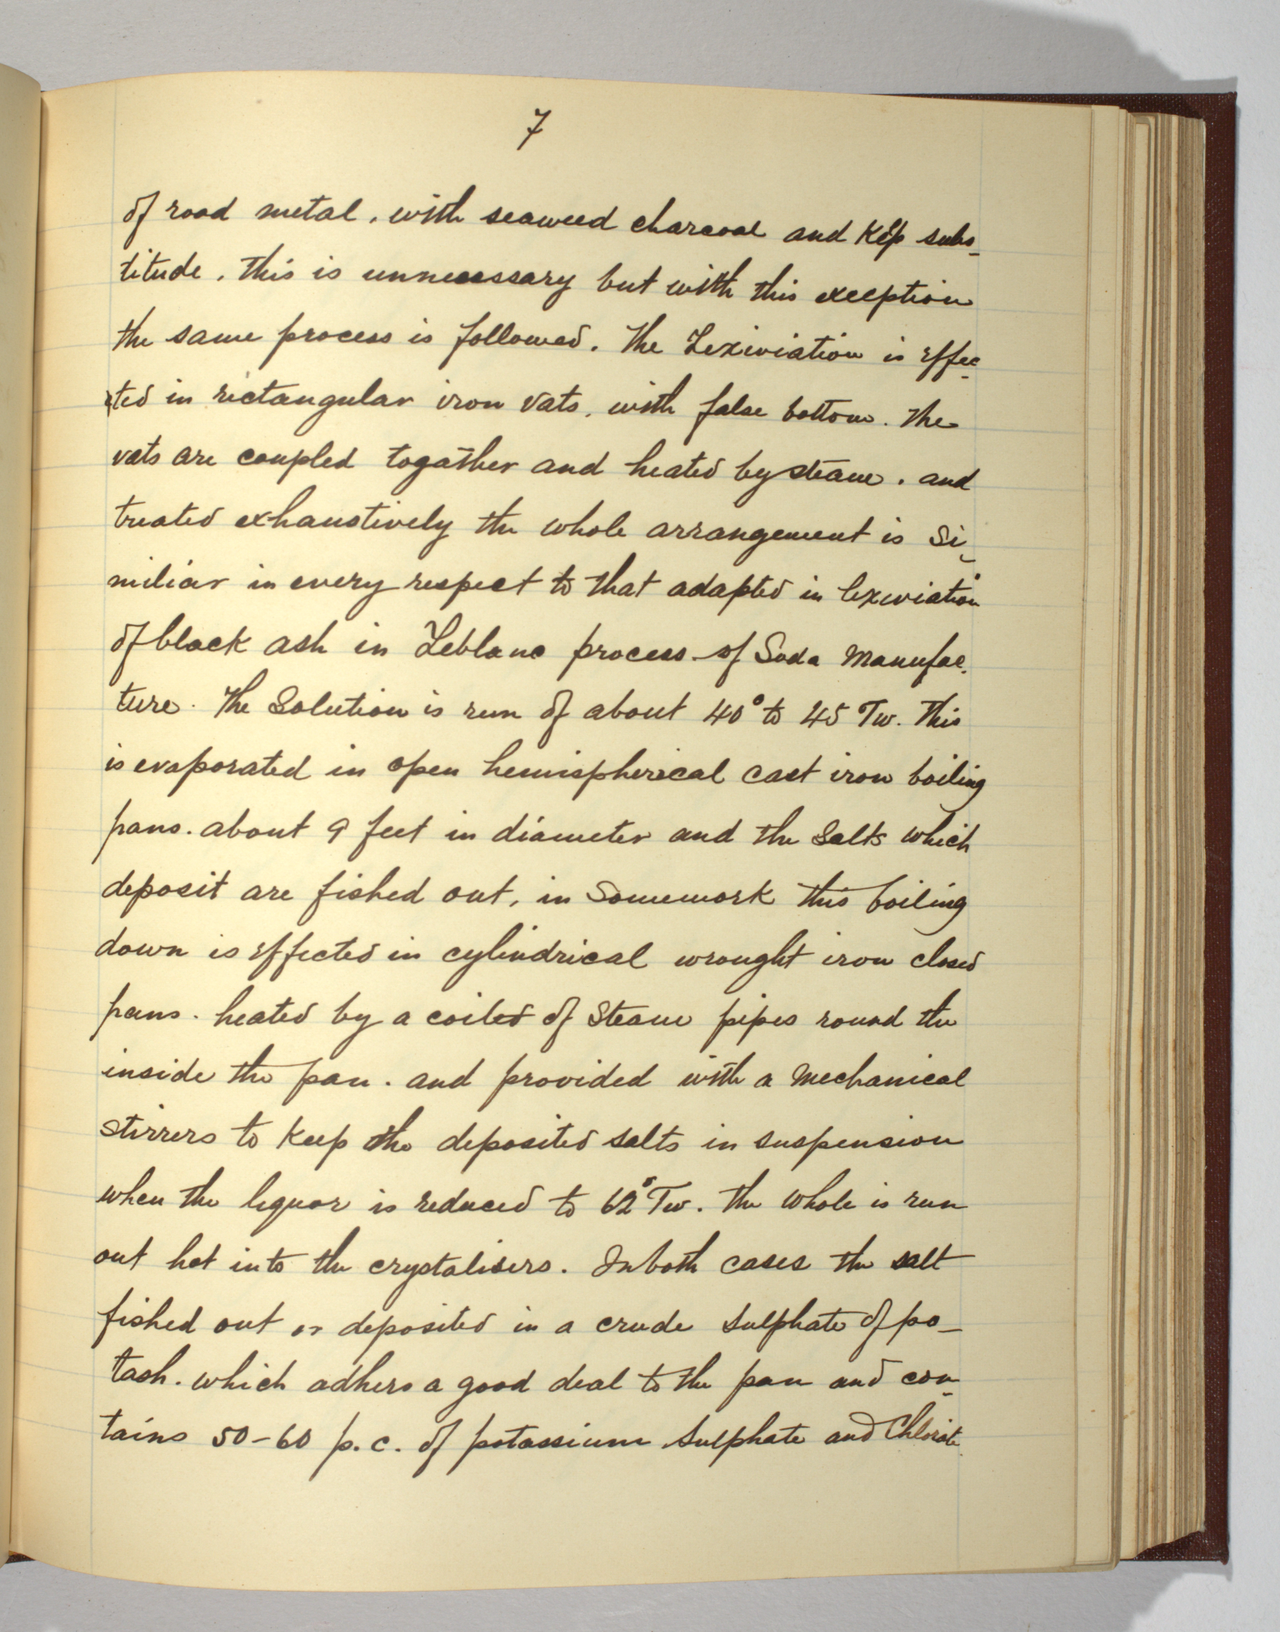 7
of road metal. with seaweed charcoal and Kelp subs-
titude. this is unnecessary but with this exception
the same process is followed. The Lexiviation is effec-
ted in rectangular iron vats. with false bottom. the
vats are coupled togather and heated by steam. and
treated exhaustively the whole arrangement is Si-
miliar in every respect to that adapted in lexiviation
of black ash in Leblanc process of Soda Manufac-
ture. The Solution is run of about 40° to 45 Tw. This
is evaporated in open hemispherical cast iron boiling
pans. about 9 feet in diameter and the Salts which
deposit are fished out, in Somework this boiling
down is effected in cylindrical wrought iron closed
pans. heated by a coiled of Steam pipes round the
inside the pan. and provided with a Mechanical
stirrers to Keep the deposited salts in suspension
when the liquor is reduced to 62° Tw. the whole is run
out hot into the crystalisers. In both cases the salt
fished out or deposited in a crude Sulphate of po-
tash. which adhers a good deal to the pan and con-
tains 50-60 p.c. of potassium Sulphate and Chlorate